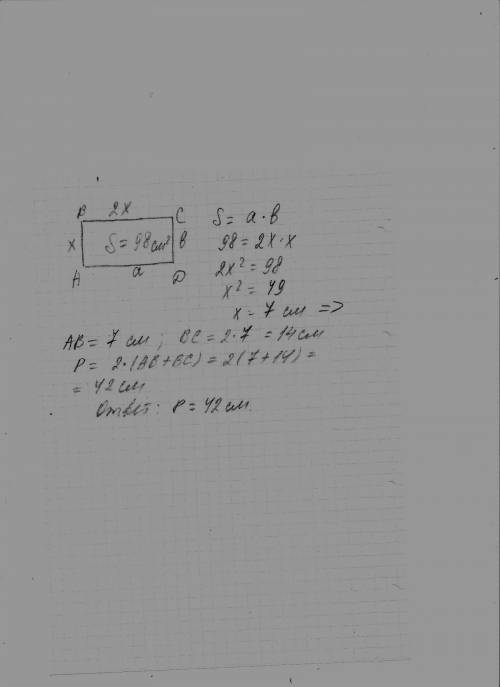 B 2x C
x S = 98 см² в
A a D
S = a · в
98 = 2x · x
2x² = 98
x² = 49
x = 7 см =>
AB = 7 см ; BC = 2 · 7 = 14 см
P = 2 · (AB + BC) = 2(7 + 14) =
= 42 см
Ответ: P = 42 см.